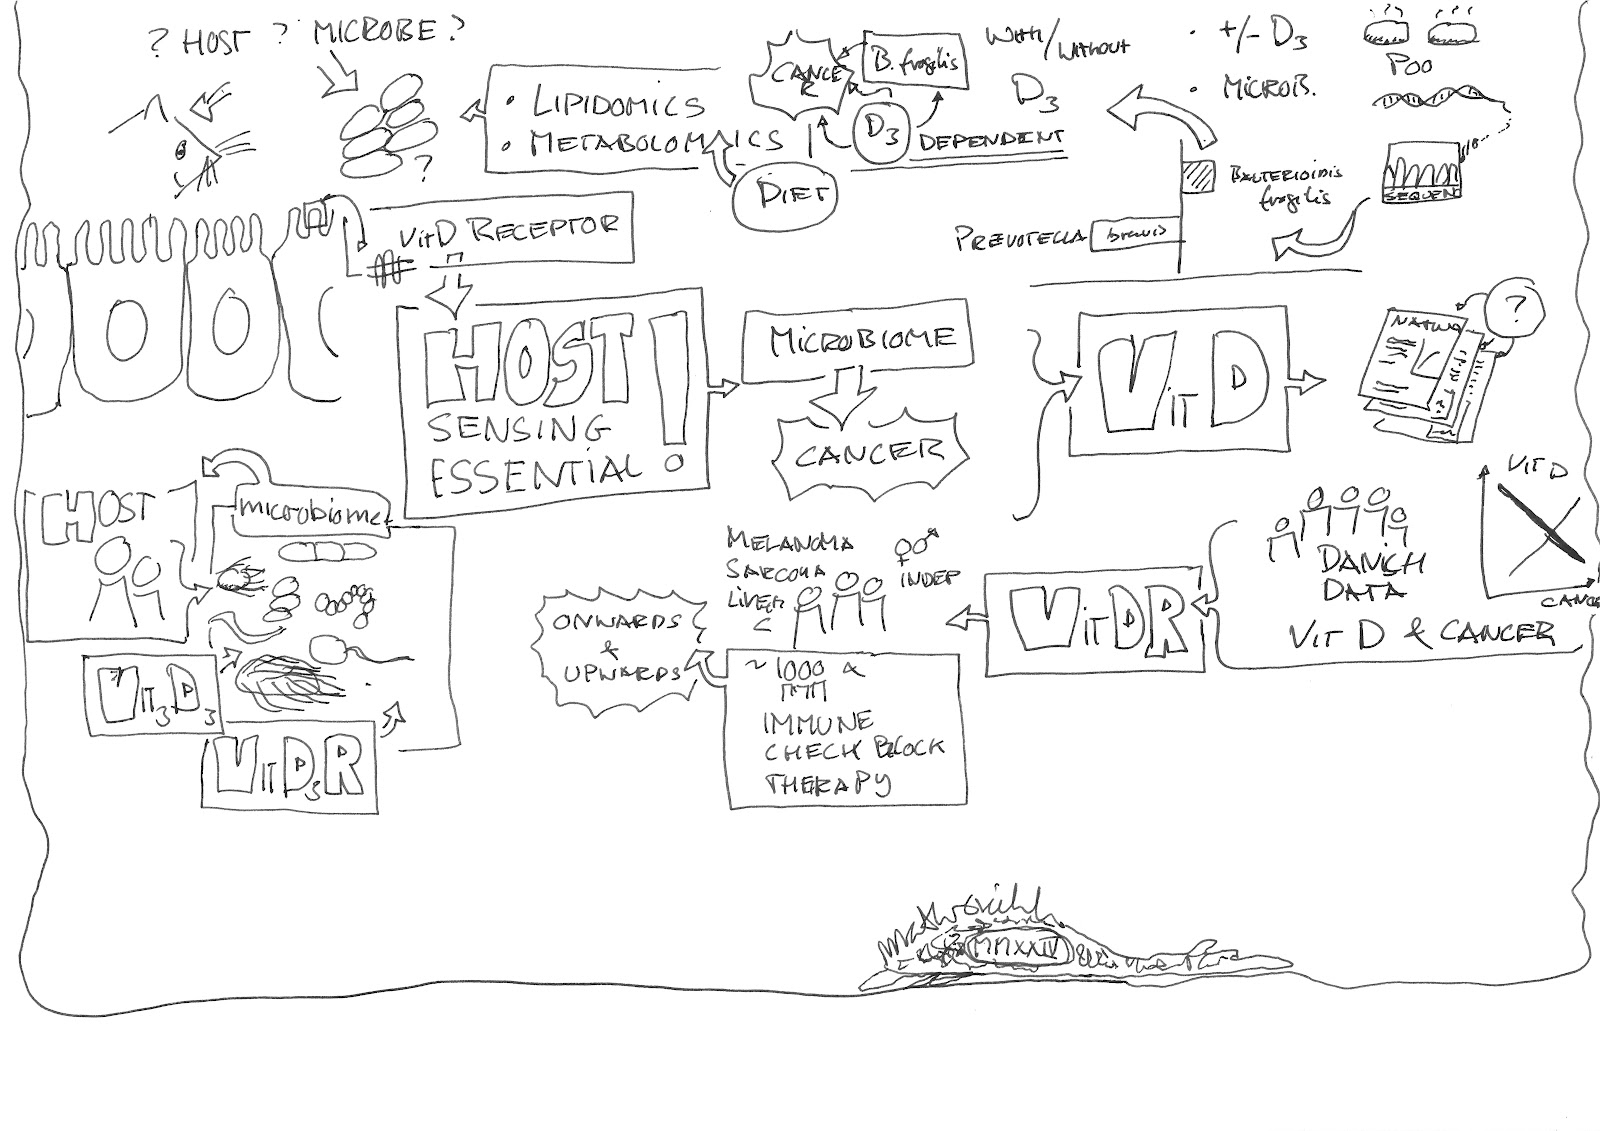 ? HOST ? MICROBE ?
• LIPIDOMICS
• METABOLOMICS
CANCER
B. fragilis
D3
DEPENDENT
DIET
WITH/WITHOUT
D3
• +/- D3
• MICROB.
POO
SEQUENC
BACTERIOIDIS
fragilis
PREVOTELLA brevis
?
VitD RECEPTOR
HOST!
SENSING
ESSENTIAL
MICROBIOME
CANCER
Vit D
NATURE
?
HOST
microbiome
Vit3D3
VitD3R
ONWARDS
&
UPWARDS
MELANOMA
SARCOMA
LIVER
C
♀♂
INDEP
~ 1000
IMMUNE
CHECK BLOCK
THERAPY
VitDR
DANISH
DATA
VIT D & CANCER
VIT D
CANCE
MMXXIV